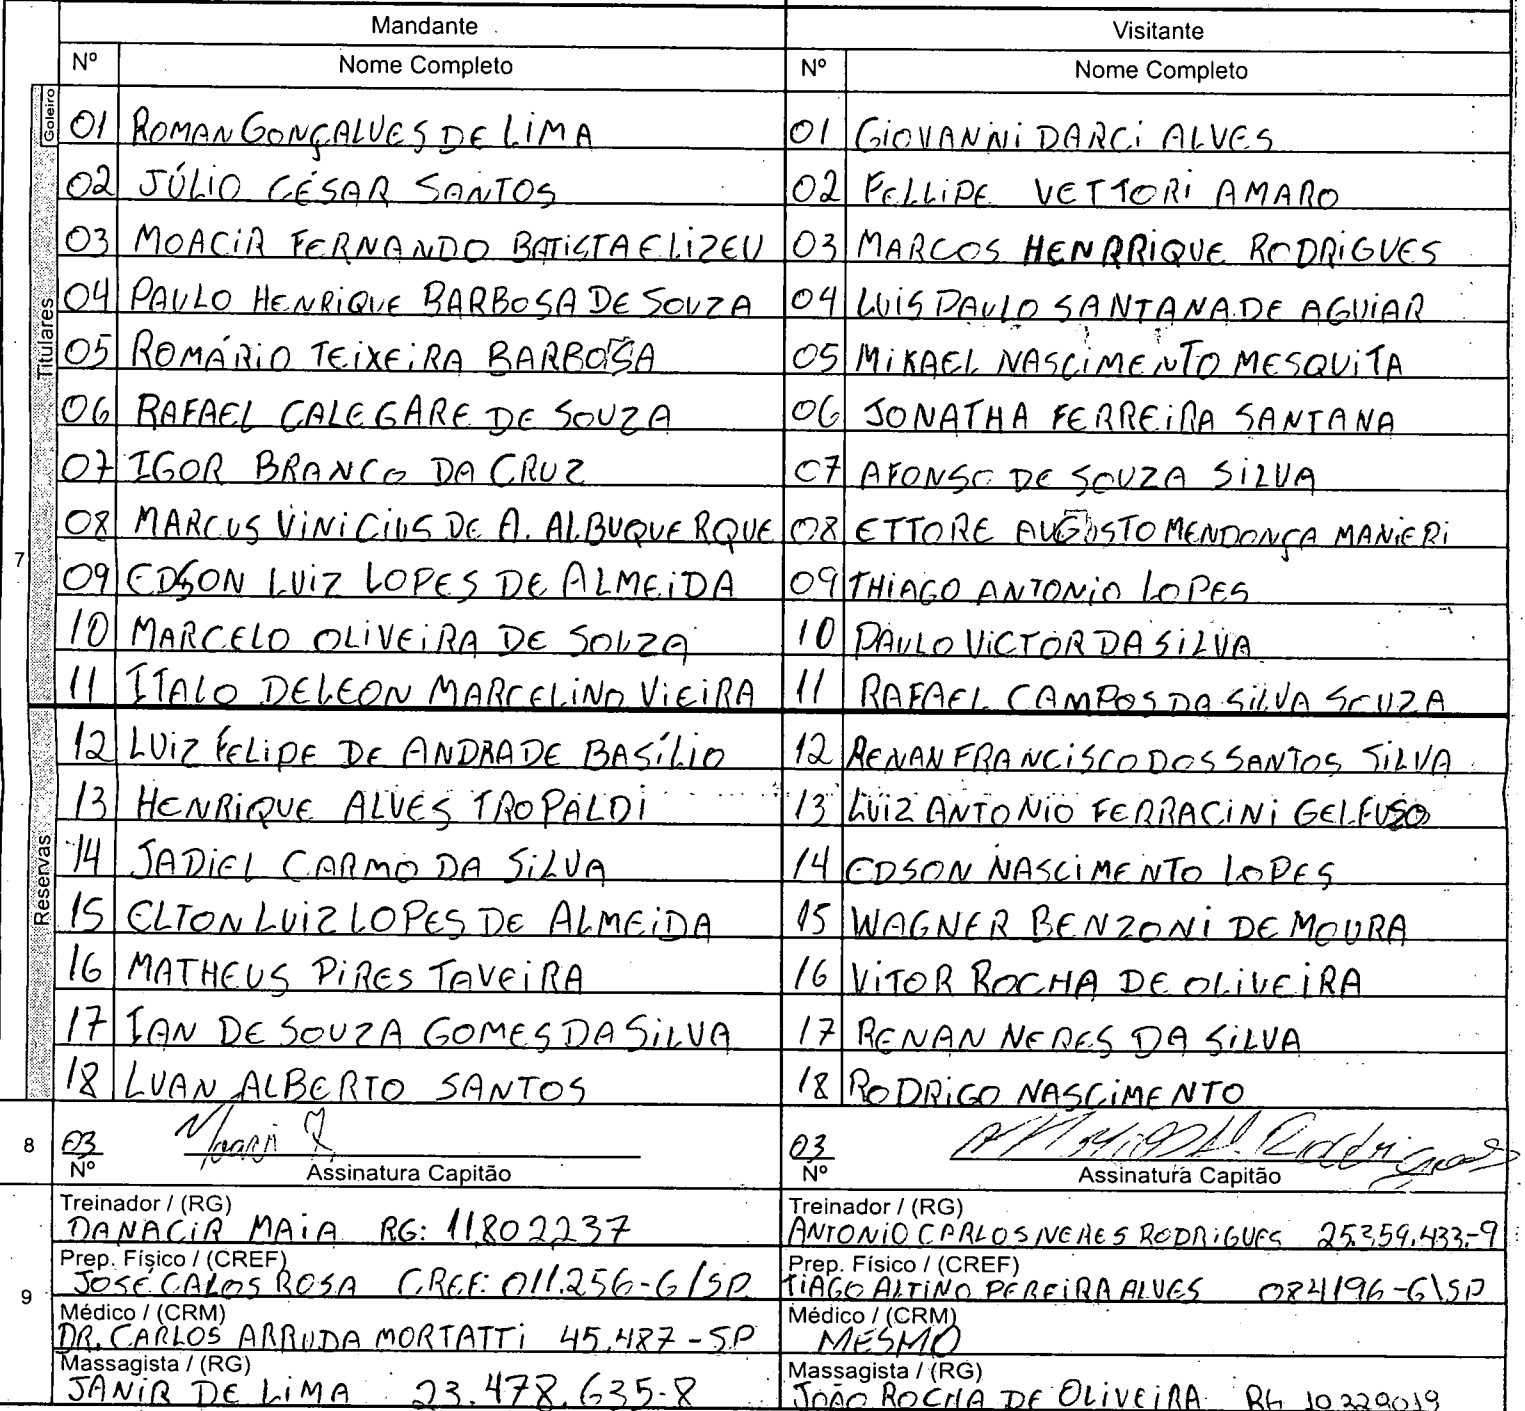 Mandante Visitante
Nº Nome Completo Nº Nome Completo
Goleiro
01 ROMAN GONÇALVES DE LIMA 01 GIOVANNI DARCI ALVES
02 JÚLIO CÉSAR SANTOS 02 FELLIPE VETTORI AMARO
03 MOACIR FERNANDO BATISTA ELIZEU 03 MARCOS HENRRIQUE RODRIGUES
Titulares
04 PAULO HENRIQUE BARBOSA DE SOUZA 04 LUIS PAULO SANTANA DE AGUIAR
05 ROMÁRIO TEIXEIRA BARBOSA 05 MIKAEL NASCIMENTO MESQUITA
06 RAFAEL CALEGARE DE SOUZA 06 JONATHA FERREIRA SANTANA
07 IGOR BRANCO DA CRUZ 07 AFONSO DE SOUZA SILVA
7
08 MARCUS VINICIUS DE A. ALBUQUERQUE 08 ETTORE AUGUSTO MENDONÇA MANIERI
09 EDSON LUIZ LOPES DE ALMEIDA 09 THIAGO ANTONIO LOPES
10 MARCELO OLIVEIRA DE SOUZA 10 PAULO VICTOR DA SILVA
11 ITALO DELEON MARCELINO VIEIRA 11 RAFAEL CAMPOS DA SILVA SOUZA
12 LUIZ FELIPE DE ANDRADE BASÍLIO 12 RENAN FRANCISCO DOS SANTOS SILVA
13 HENRIQUE ALVES TROPALDI 13 LUIZ ANTONIO FERRACINI GELFUSO
Reservas
14 JADIEL CARMO DA SILVA 14 EDSON NASCIMENTO LOPES
15 ELTON LUIZ LOPES DE ALMEIDA 15 WAGNER BENZONI DE MOURA
16 MATHEUS PIRES TAVEIRA 16 VITOR ROCHA DE OLIVEIRA
17 IAN DE SOUZA GOMES DA SILVA 17 RENAN NERES DA SILVA
18 LUAN ALBERTO SANTOS 18 RODRIGO NASCIMENTO
8 03 03
Nº Assinatura Capitão Nº Assinatura Capitão
Treinador / (RG) Treinador / (RG)
DANACIR MAIA RG: 11802237 ANTONIO CARLOS NERES RODRIGUES 25.359.433-9
Prep. Físico / (CREF) Prep. Físico / (CREF)
JOSÉ CALOS ROSA CREF: 011.256-G/SP TIAGO ALTINO PEREIRA ALVES 084196-G\SP
9
Médico / (CRM) Médico / (CRM)
DR. CARLOS ARRUDA MORTATTI 45.487-SP MESMO
Massagista / (RG) Massagista / (RG)
JANIR DE LIMA 23.478.635-8 JOÃO ROCHA DE OLIVEIRA RG 10329019